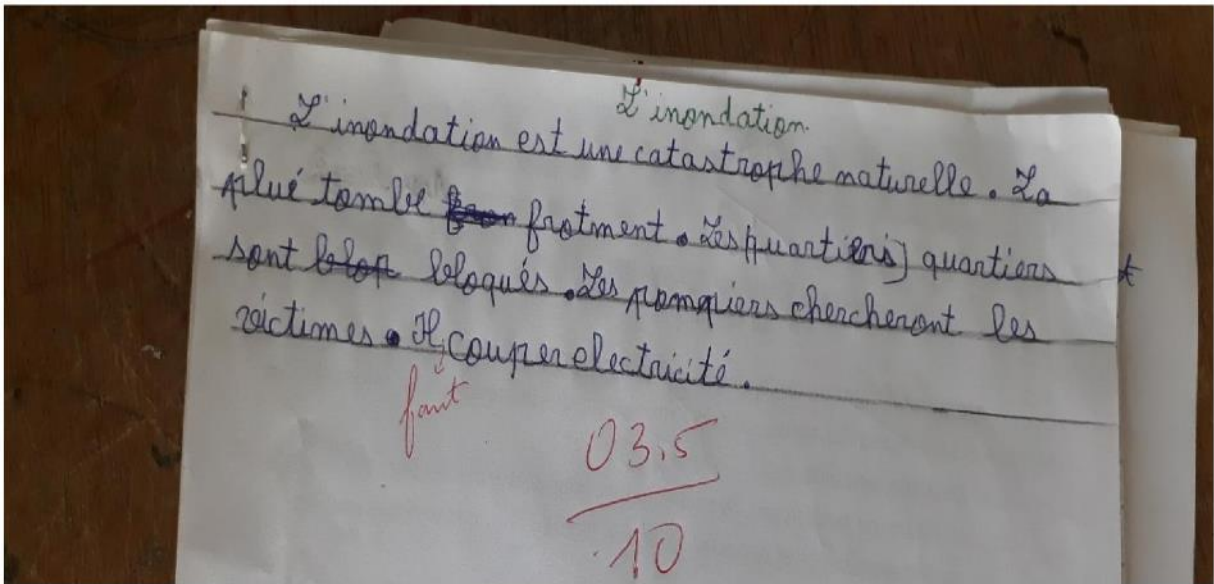 L'inondation.
L'inondation est une catastrophe naturelle. La
plué tombe frotment. Les quartiers) quartiers
sont bloqués. Les pompiers chercheront les
victimes. Il couper electricité.
faut
03.5
10